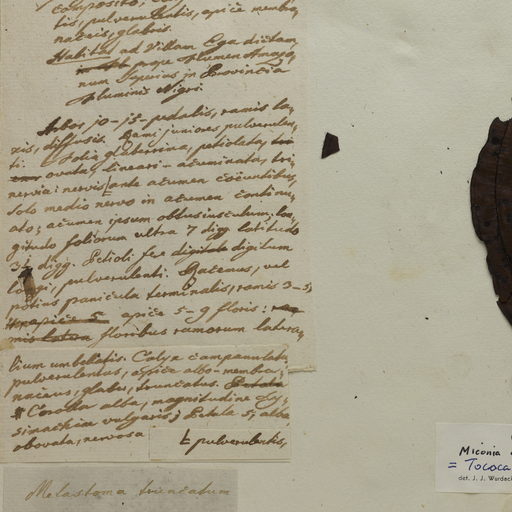 composito,
tis, pulverulentis, apice membra,
naceis, glabris.
Habitat ad Villam Ega dictam,
prope flumen Amazo,
num Superius in Provincia
fluminis Nigri.
Arbor 10-15-pedalis, ramis la,
xis, diffusis. Rami juniores pulverulen,
ti. Folia glaberrima, petiolata,
ovata, lineari-acuminata, tri,
nervia: nervis ante acumen coeuntibus,
solo medio nervo in acumen continu,
ato; acumen ipsum obtusiusculum, lon,
gitudo foliorum ultra 7 digg. latitudo
3½ digg. Petioli fere digitale digitum
longi, pulverulenti. Racemus, vel
potius panicula terminalis, ramis 3-5,
apice 5-9 floris:
floribus ramorum latera,
lium umbellatis. Calyx campanulat,
pulverulentus, apice albo-membra,
naceus, glaber, truncatus. Petala
Corolla alba, magnitudine Ly,
simachiae vulgaris; Petala 5, alba,
obovata, nervosa
t pulverulentis,
Melastoma truncatum
Miconia
= Tococa
det. J. J. Wurdack